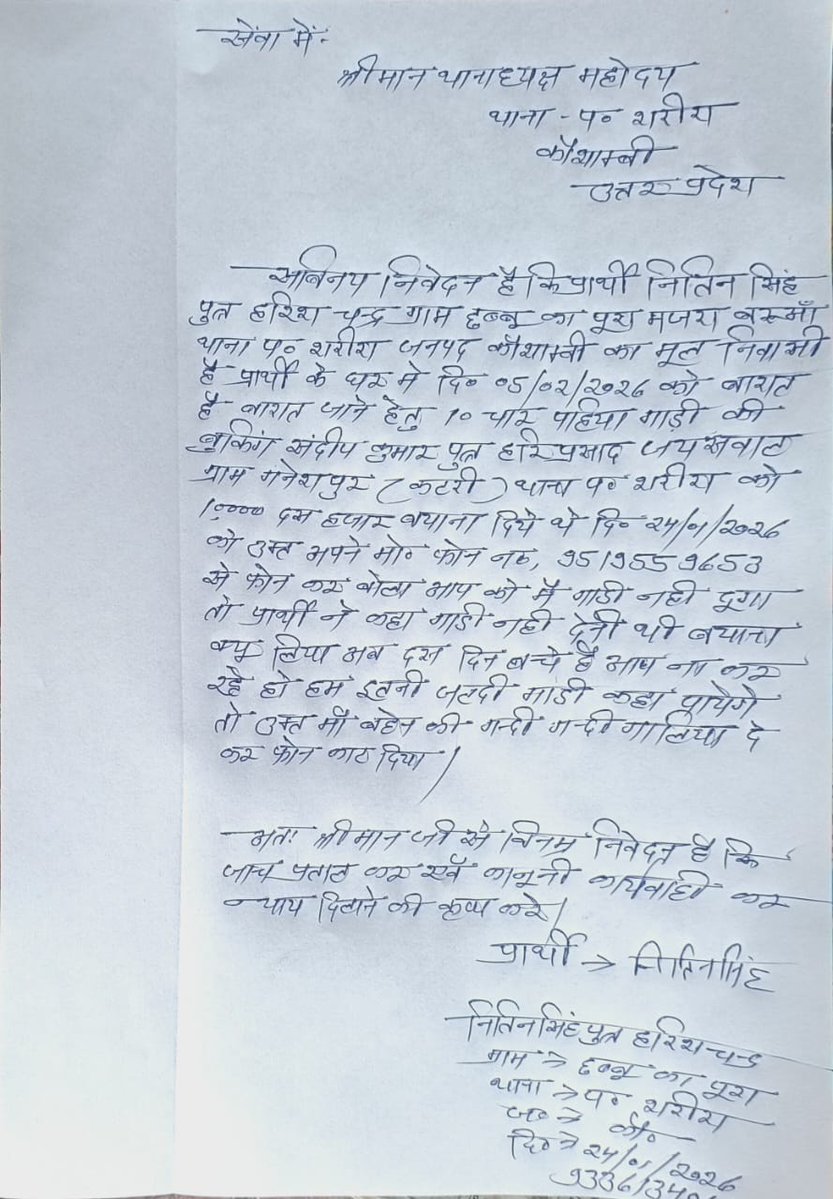 सेवा में-
श्रीमान थानाध्यक्ष महोदय
थाना - प० शरीरा
कौशाम्बी
उत्तर प्रदेश
सविनय निवेदन है कि प्रार्थी नितिन सिंह
पुत्र हरिश चन्द्र ग्राम ढब्बू का पूरा मजरा
थाना प० शरीरा जनपद कौशाम्बी का मूल निवासी
है प्रार्थी के घर मे दि० ०5/०2/2०26 को बारात
है बारात जाने हेतु 1० चार पहिया गाड़ी की
बुकिंग संदीप कुमार पुत्र हरिप्रसाद जयसवाल
ग्राम गनेशपुर (कटरी) थाना प० शरीरा को
1०,००० दस हजार बयाना दिये थे दि० 24/०1/2०26
को उक्त अपने मो० फोन न०, 9519559653
से फोन कर बोला आप को मै गाडी नही दूगा
तो प्रार्थी ने कहा गाडी नही देनी थी बयाना
क्यू लिया अब दस दिन बचे है आप ना कर
रहे हो हम इतनी जल्दी गाडी कहा पायेगे
तो उक्त माँ बहेन की गन्दी गन्दी गालिया दे
कर फोन काट दिया।
अतः श्रीमान जी से विनम्र निवेदन है कि
जाच पताल कर एवँ कानूनी कार्यवाही कर
न्याय दिलाने की कृपा करे।
प्रार्थी → नितिन सिंह
नितिन सिंह पुत्र हरिश चन्द्र
ग्राम → ढब्बू का पूरा
थाना → प० शरीरा
ज० → कौ०
दि० → 24/०1/2०26